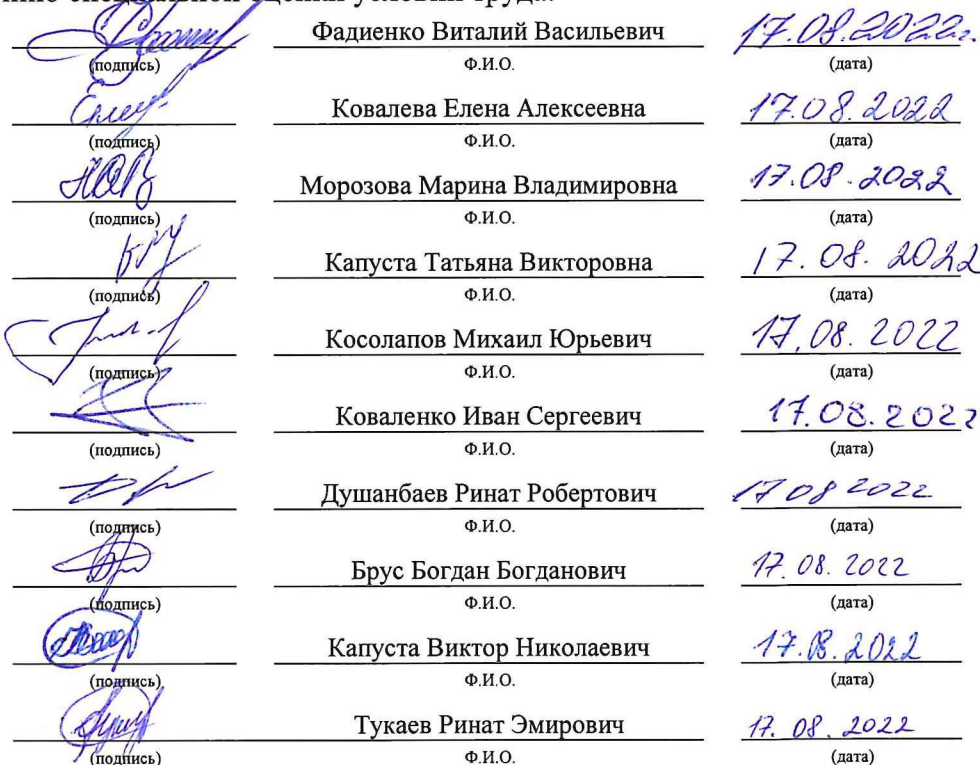 специальной оценки условий труда.
Фадиенко Виталий Васильевич 17.08.2022г.
(подпись) Ф.И.О. (дата)
Ковалева Елена Алексеевна 17.08.2022
(подпись) Ф.И.О. (дата)
Морозова Марина Владимировна 17.08.2022
(подпись) Ф.И.О. (дата)
Капуста Татьяна Викторовна 17.08.2022
(подпись) Ф.И.О. (дата)
Косолапов Михаил Юрьевич 17.08.2022
(подпись) Ф.И.О. (дата)
Коваленко Иван Сергеевич 17.08.2022
(подпись) Ф.И.О. (дата)
Душанбаев Ринат Робертович 17 08 2022
(подпись) Ф.И.О. (дата)
Брус Богдан Богданович 17.08.2022
(подпись) Ф.И.О. (дата)
Капуста Виктор Николаевич 17.08.2022
(подпись) Ф.И.О. (дата)
Тукаев Ринат Эмирович 17.08.2022
(подпись) Ф.И.О. (дата)